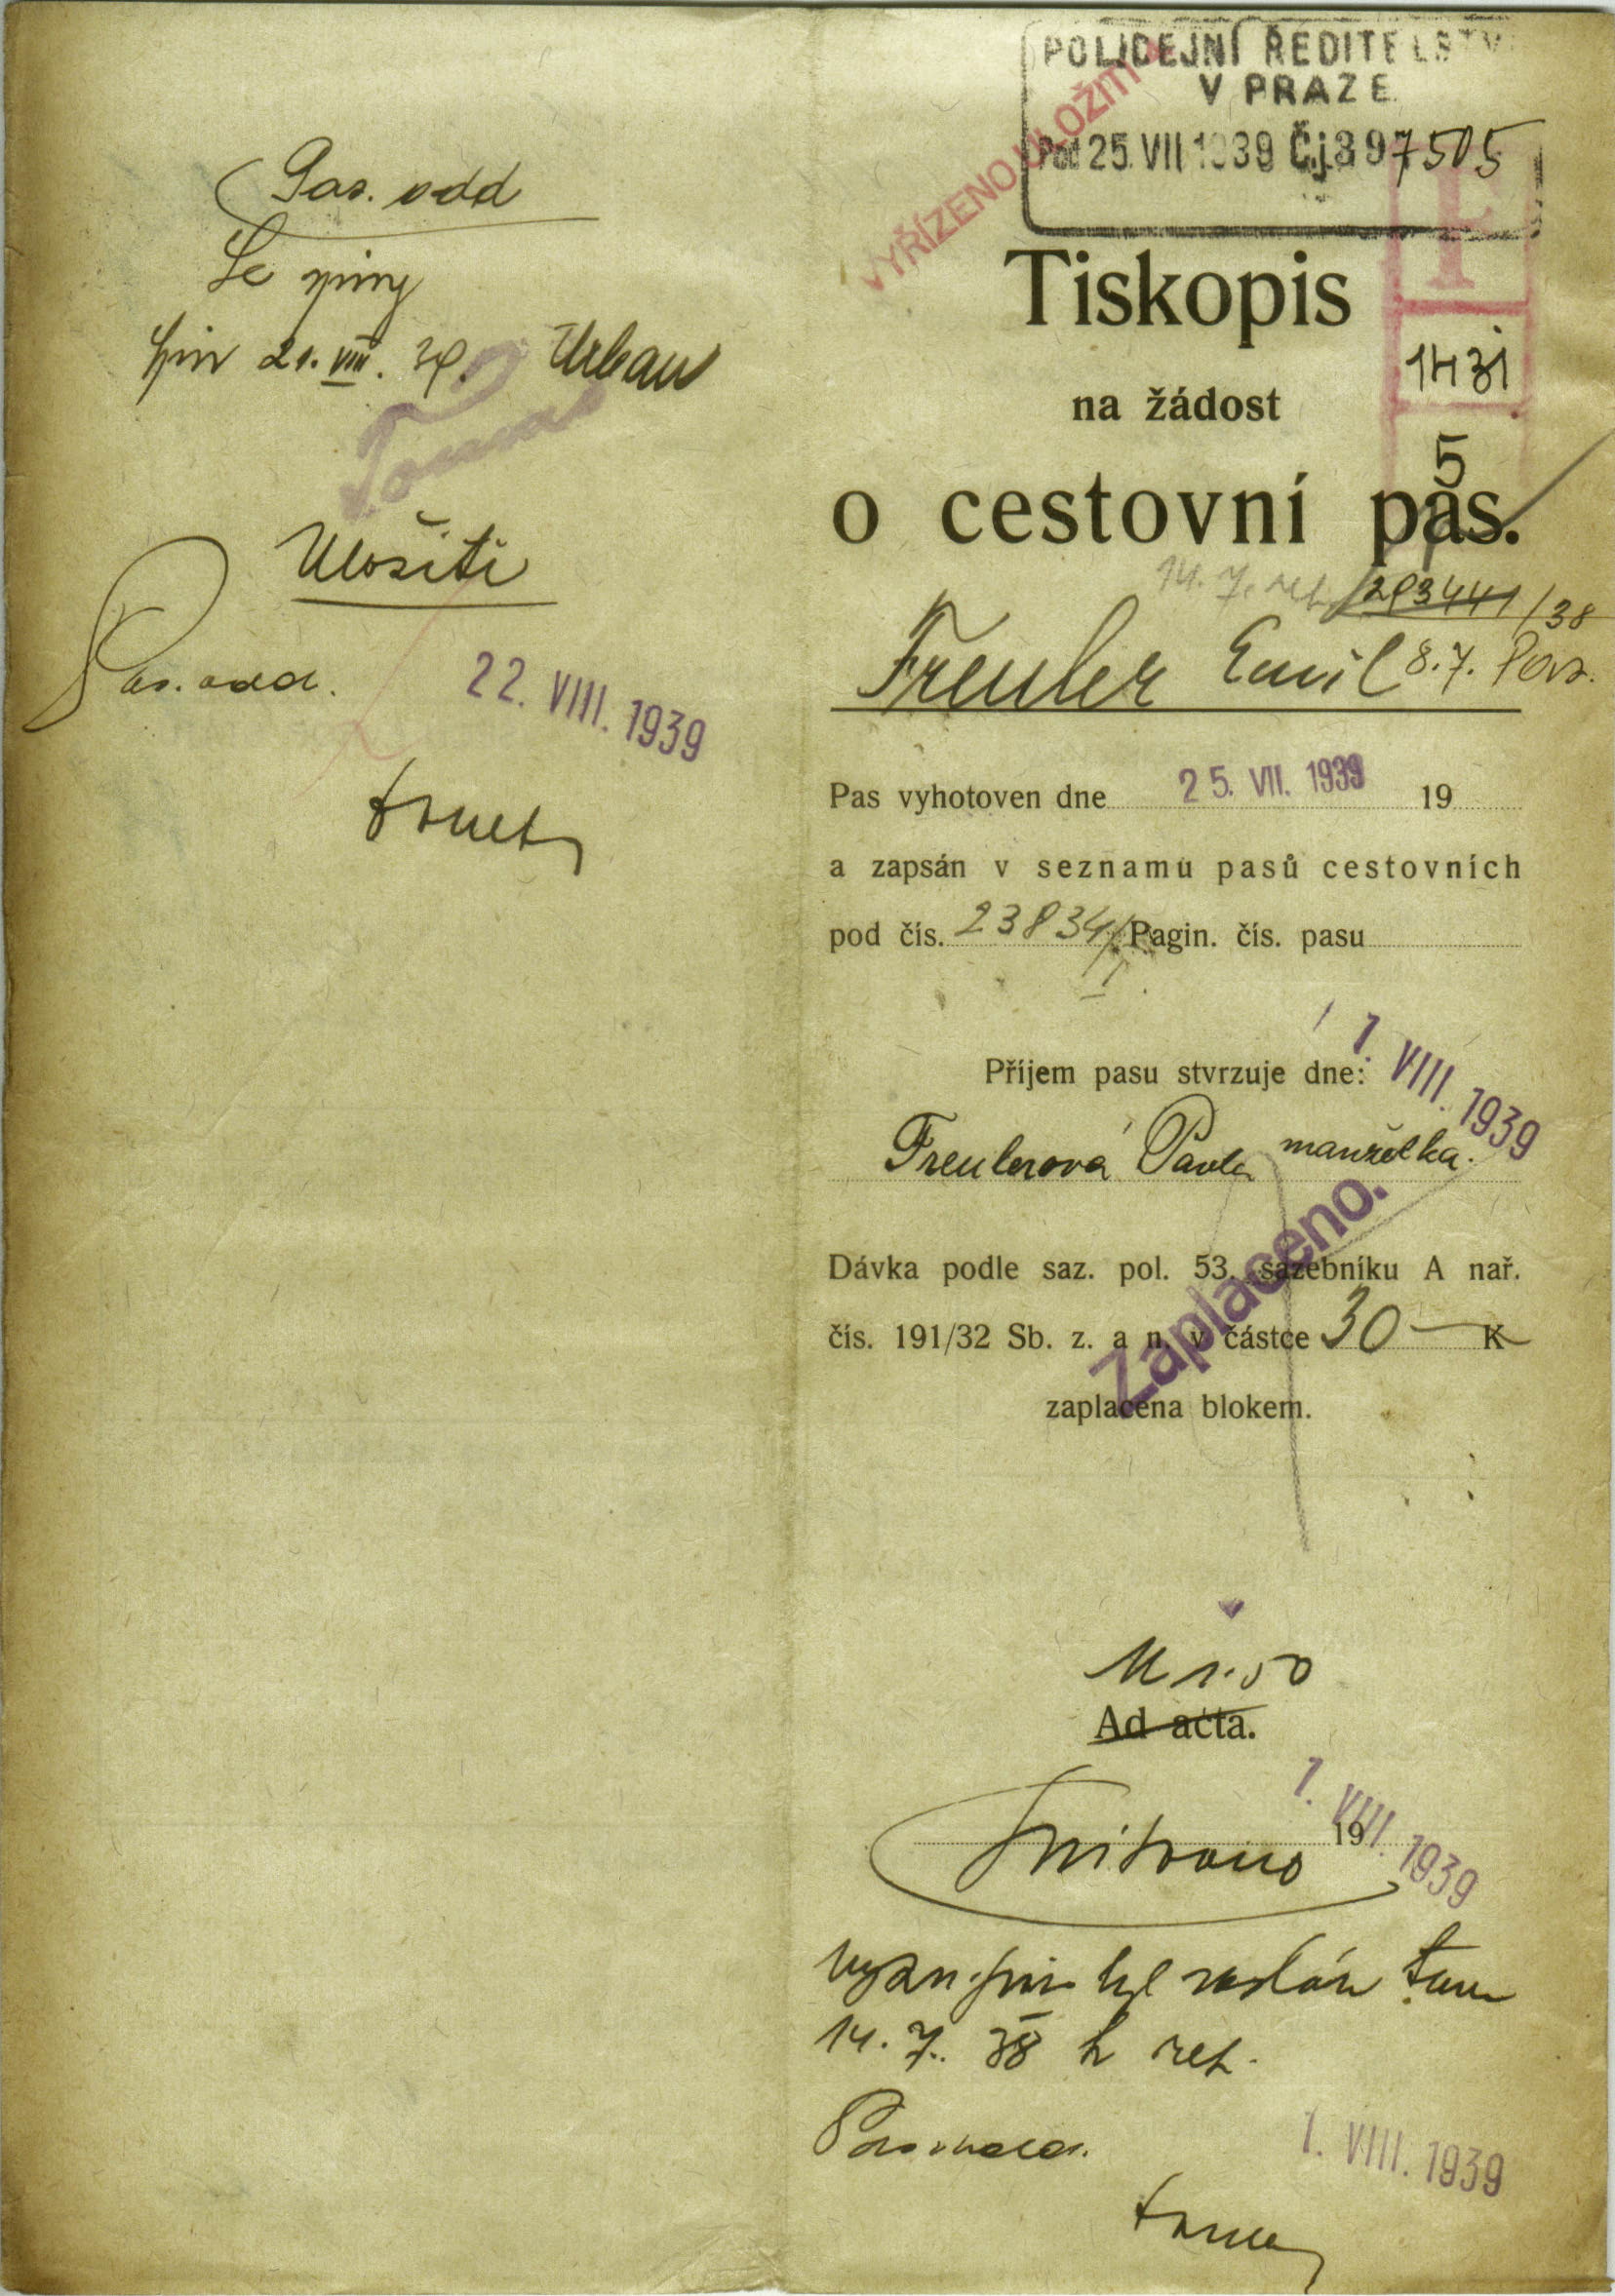 Pas. odd
21. VIII. 39. Urban
Uložiti
Pas. odd.
22. VIII. 1939
POLICEJNÍ ŘEDITELSTV
V PRAZE
25. VII 1939 Čj 397505
VYŘÍZENO ULOŽIT
F
1431
5
Tiskopis
na žádost
o cestovní pas.
14. 7. ref. 293441/38
Freuler Emil 8.7. Pas.
Pas vyhotoven dne 25. VII. 1939 19
a zapsán v seznamu pasů cestovních
pod čís. 23834/I Pagin. čís. pasu
Příjem pasu stvrzuje dne: 1. VIII. 1939
Freulerová Pavla manželka.
Zaplaceno.
Dávka podle saz. pol. 53. sazebníku A nař.
čís. 191/32 Sb. z. a n. v částce 30 — K
zaplacena blokem.
Ad acta.
19
1. VIII. 1939
byl zaslán tam
14. 7. 38 k ref.
1. VIII. 1939